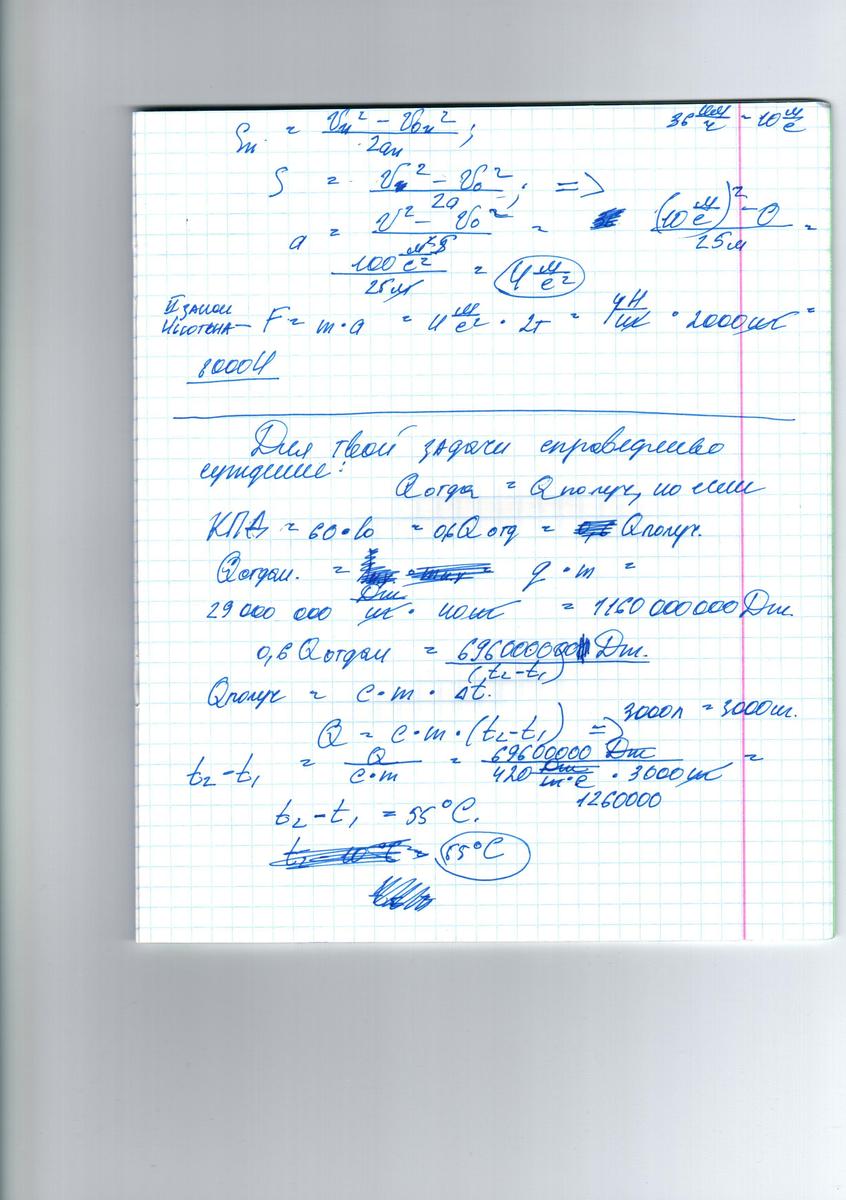 Sₓ = (vₓ² − v₀ₓ²) / 2aₓ ; 36 км/ч = 10 м/с
S = (v² − v₀²) / 2a ; =>
a = (v² − v₀²) / = (10 м/с)² − 0 / 25м =
100 м²/с² / 25м = 4 м/с²
II закон
Ньютона — F = m · a = 4 м/с² · 2т = 4Н/кг · 2000кг =
8000Н
Для твоей задачи справедливо
суждение:
Qотда = Qполуч, но если
КПД = 60 % = 0,6Qотд = Qполуч.
Qотдал. = q · m =
29 000 000 Дж/кг · 40кг = 1160 000 000 Дж.
0,6 Qотдал = 696000000 Дж.
(t₂−t₁)
Qполуч = c · m · Δt.
3000л = 3000кг.
Q = c · m · (t₂−t₁) =>
t₂−t₁ = Q / c·m = 69600000 Дж / 420 Дж/кг·°C · 3000кг =
1260000
t₂−t₁ = 55°C.
55°C